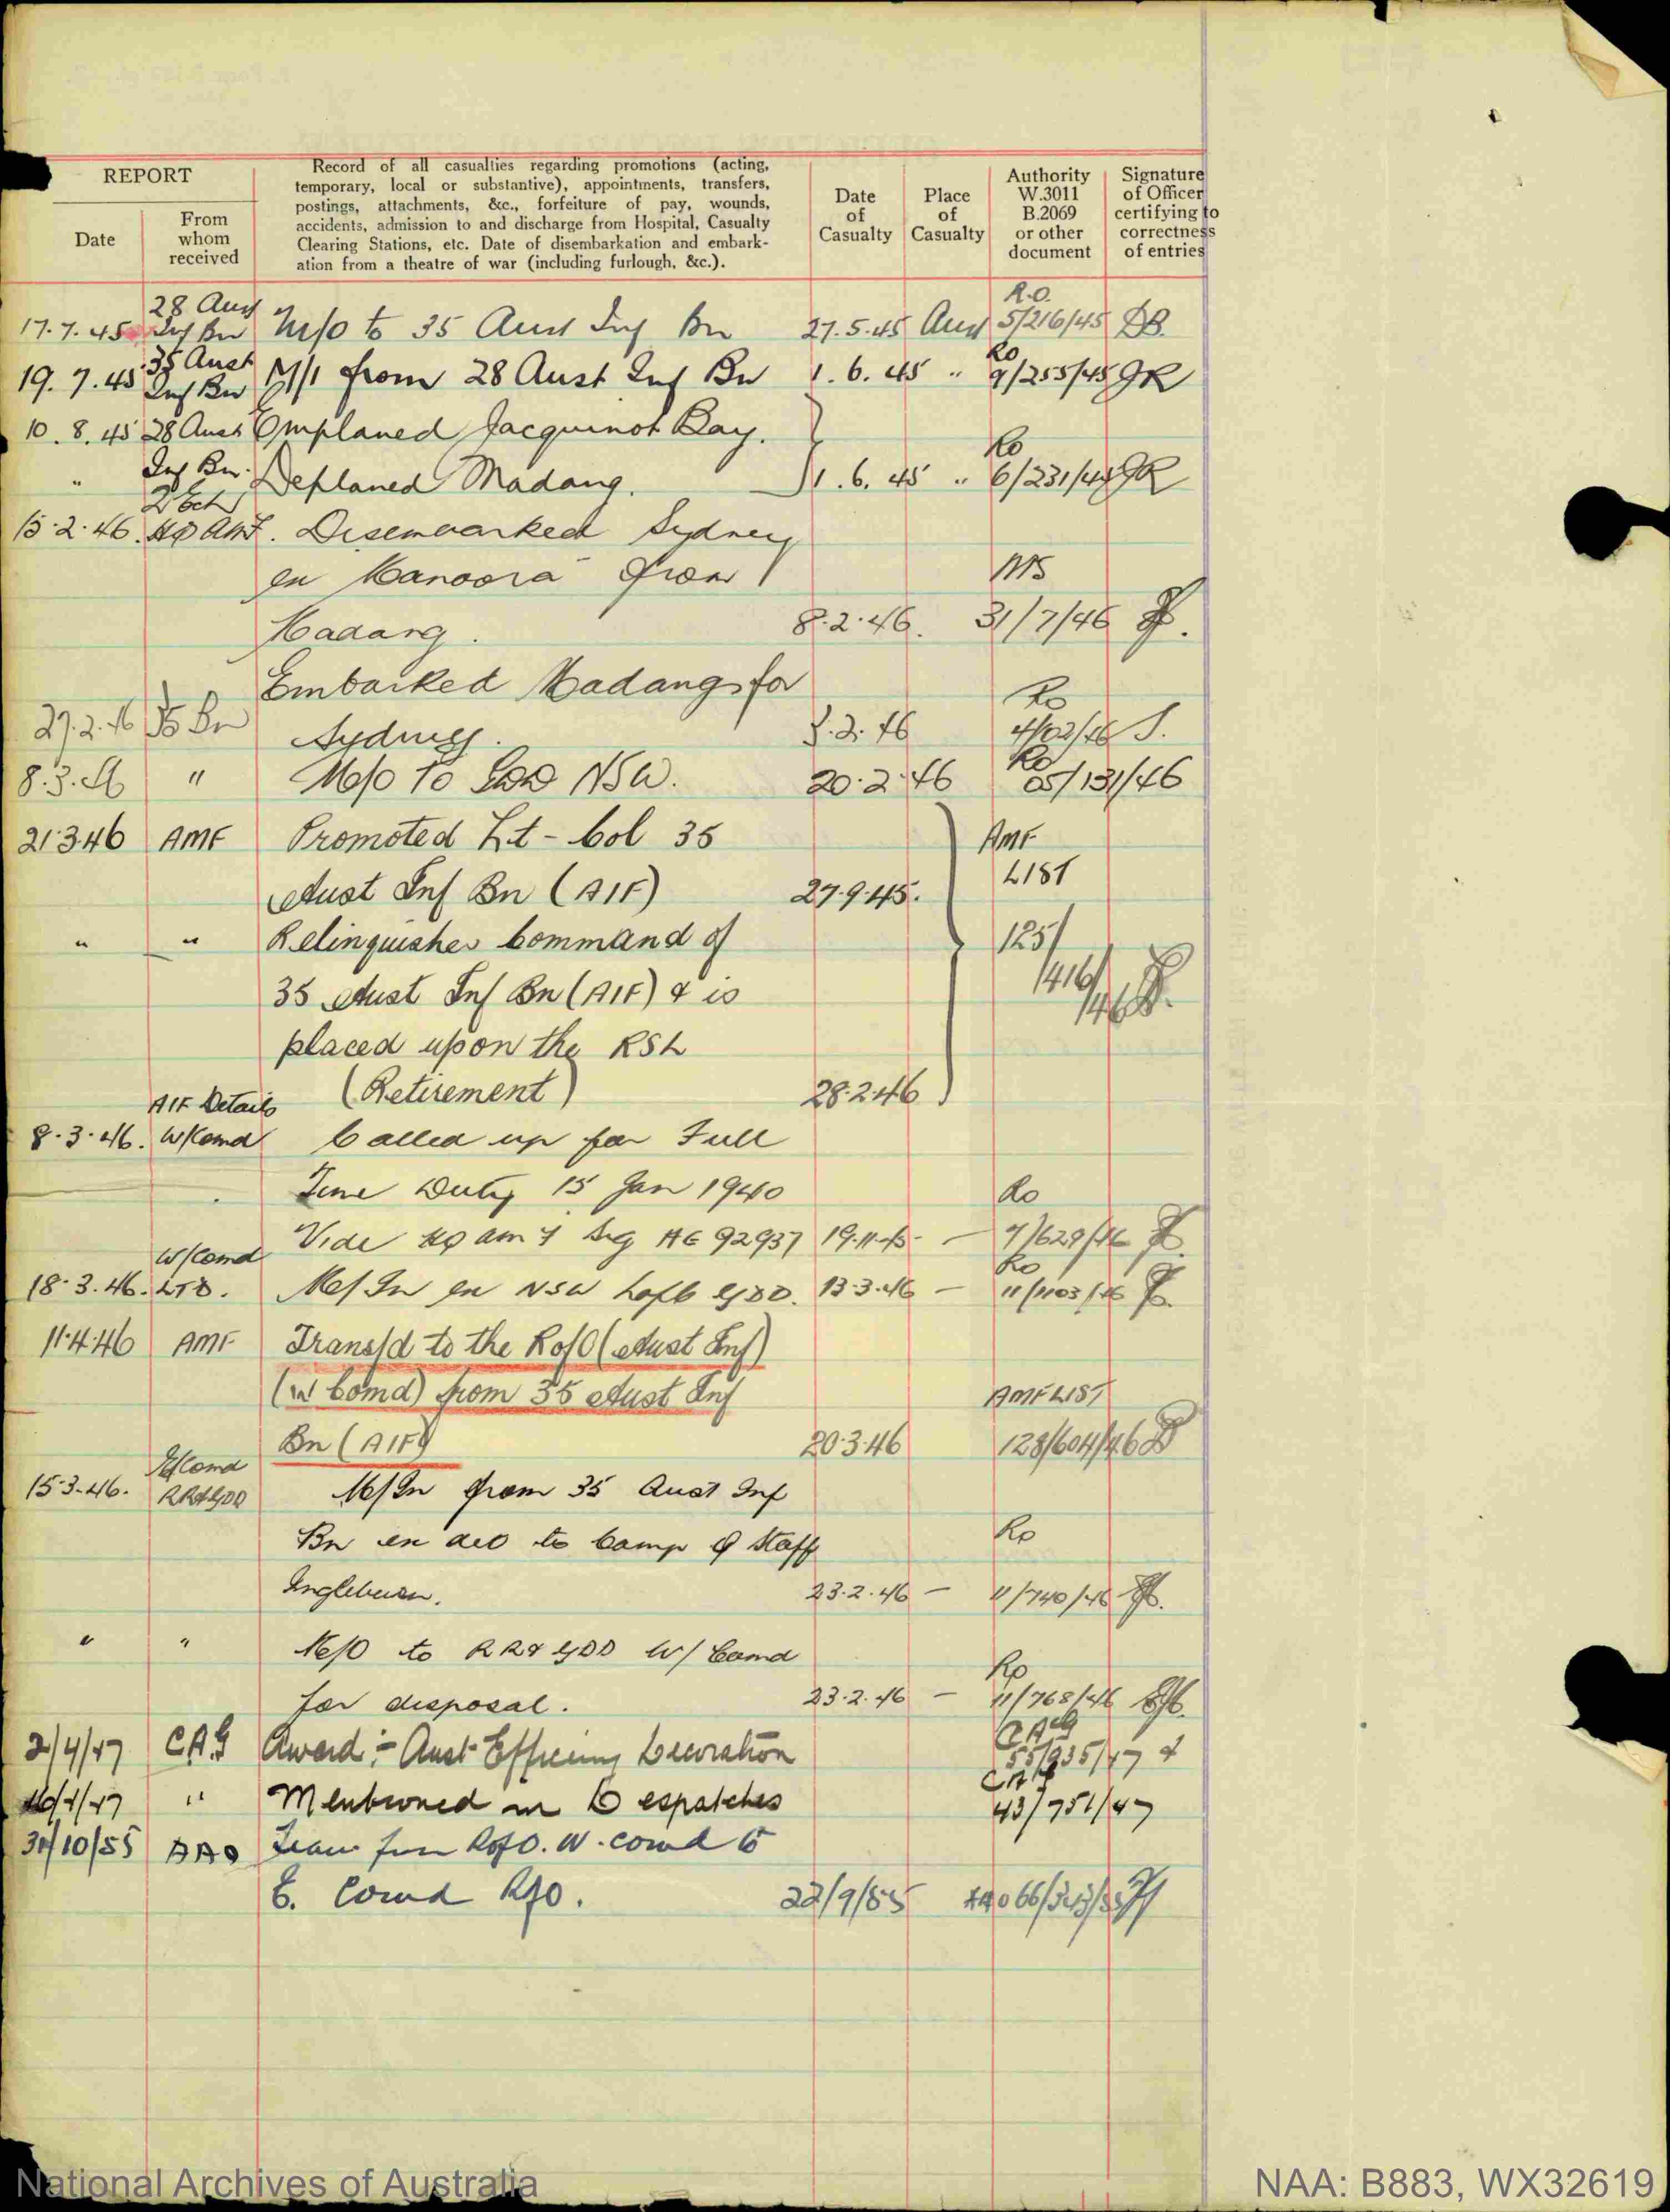 REPORT
Date
From whom received
Record of all casualties regarding promotions (acting,
temporary, local or substantive), appointments, transfers,
postings, attachments, &c., forfeiture of pay, wounds,
accidents, admission to and discharge from Hospital, Casualty
Clearing Stations, etc. Date of disembarkation and embark-
ation from a theatre of war (including furlough, &c.).
Date of Casualty
Place of Casualty
Authority W.3011 B.2069 or other document
Signature of Officer certifying to correctness of entries
28 Aust R.O.
17.7.45 Inf Bn M/O to 35 Aust Inf Bn 27.5.45 Aust 5/216/45
35 Aust Ro
19.7.45 Inf Bn M/I from 28 Aust Inf Bn 1.6.45 " 9/255/45 GR
10.8.45 28 Aust Emplaned Jacquinot Bay.
" Inf Bn. Deplaned Madang. 1.6.45 " Ro 6/231/45 GR
2 Ech
15.2.46. HQ AMF. Disembarked Sydney
ex Manoora from MS
Madang. 8.2.46. 31/7/46
Embarked Madang for Ro
27.2.46 35 Bn Sydney. 2.46
8.3.46 " M/o to GDD NSW. 20.2.46 Ro 131/46
21346 AMF Promoted Lt-Col 35 AMF
Aust Inf Bn (AIF) 27.9.45.
" " Relinquishes Command of 125/
35 Aust Inf Bn (AIF) & is 1416/
placed upon the RSL
(Retirement) 28.2.46
AIF Details
8.3.46. W/Comd Called up for Full
Time Duty 15 Jan 1940 Ro
Vide HQ am 4 Sig AG 92937 19.11. 7/629/46
W/Comd Ro
18.3.46. LTD. M/In ex NSW L of C GDD. 13.3.46 - 11/1103/46
11.4.46 AMF Transf'd to the R of O (Aust Inf)
(W Comd) from 35 Aust Inf
Bn (AIF) 20.3.46 128/604/46
15.3.46. RR&GDD M/In from 35 Aust Inf
Bn en to Camp Staff Ro
Ingleburn. 23.2.46 - 11/740/46
" " M/O to RR& GDD W/Comd Ro
for disposal. 23.2.46 - 11/768/46
2/4/47 CAG Award :- Aust Efficiency Decoration CAG 55/935/47
16/4/47 " Mentioned in Despatches CAG 43/751/47
31/10/55 AAO Tran from R of O. W. Comd to
E. Comd R of O. 22/9/55
National Archives of Australia
NAA: B883, WX32619